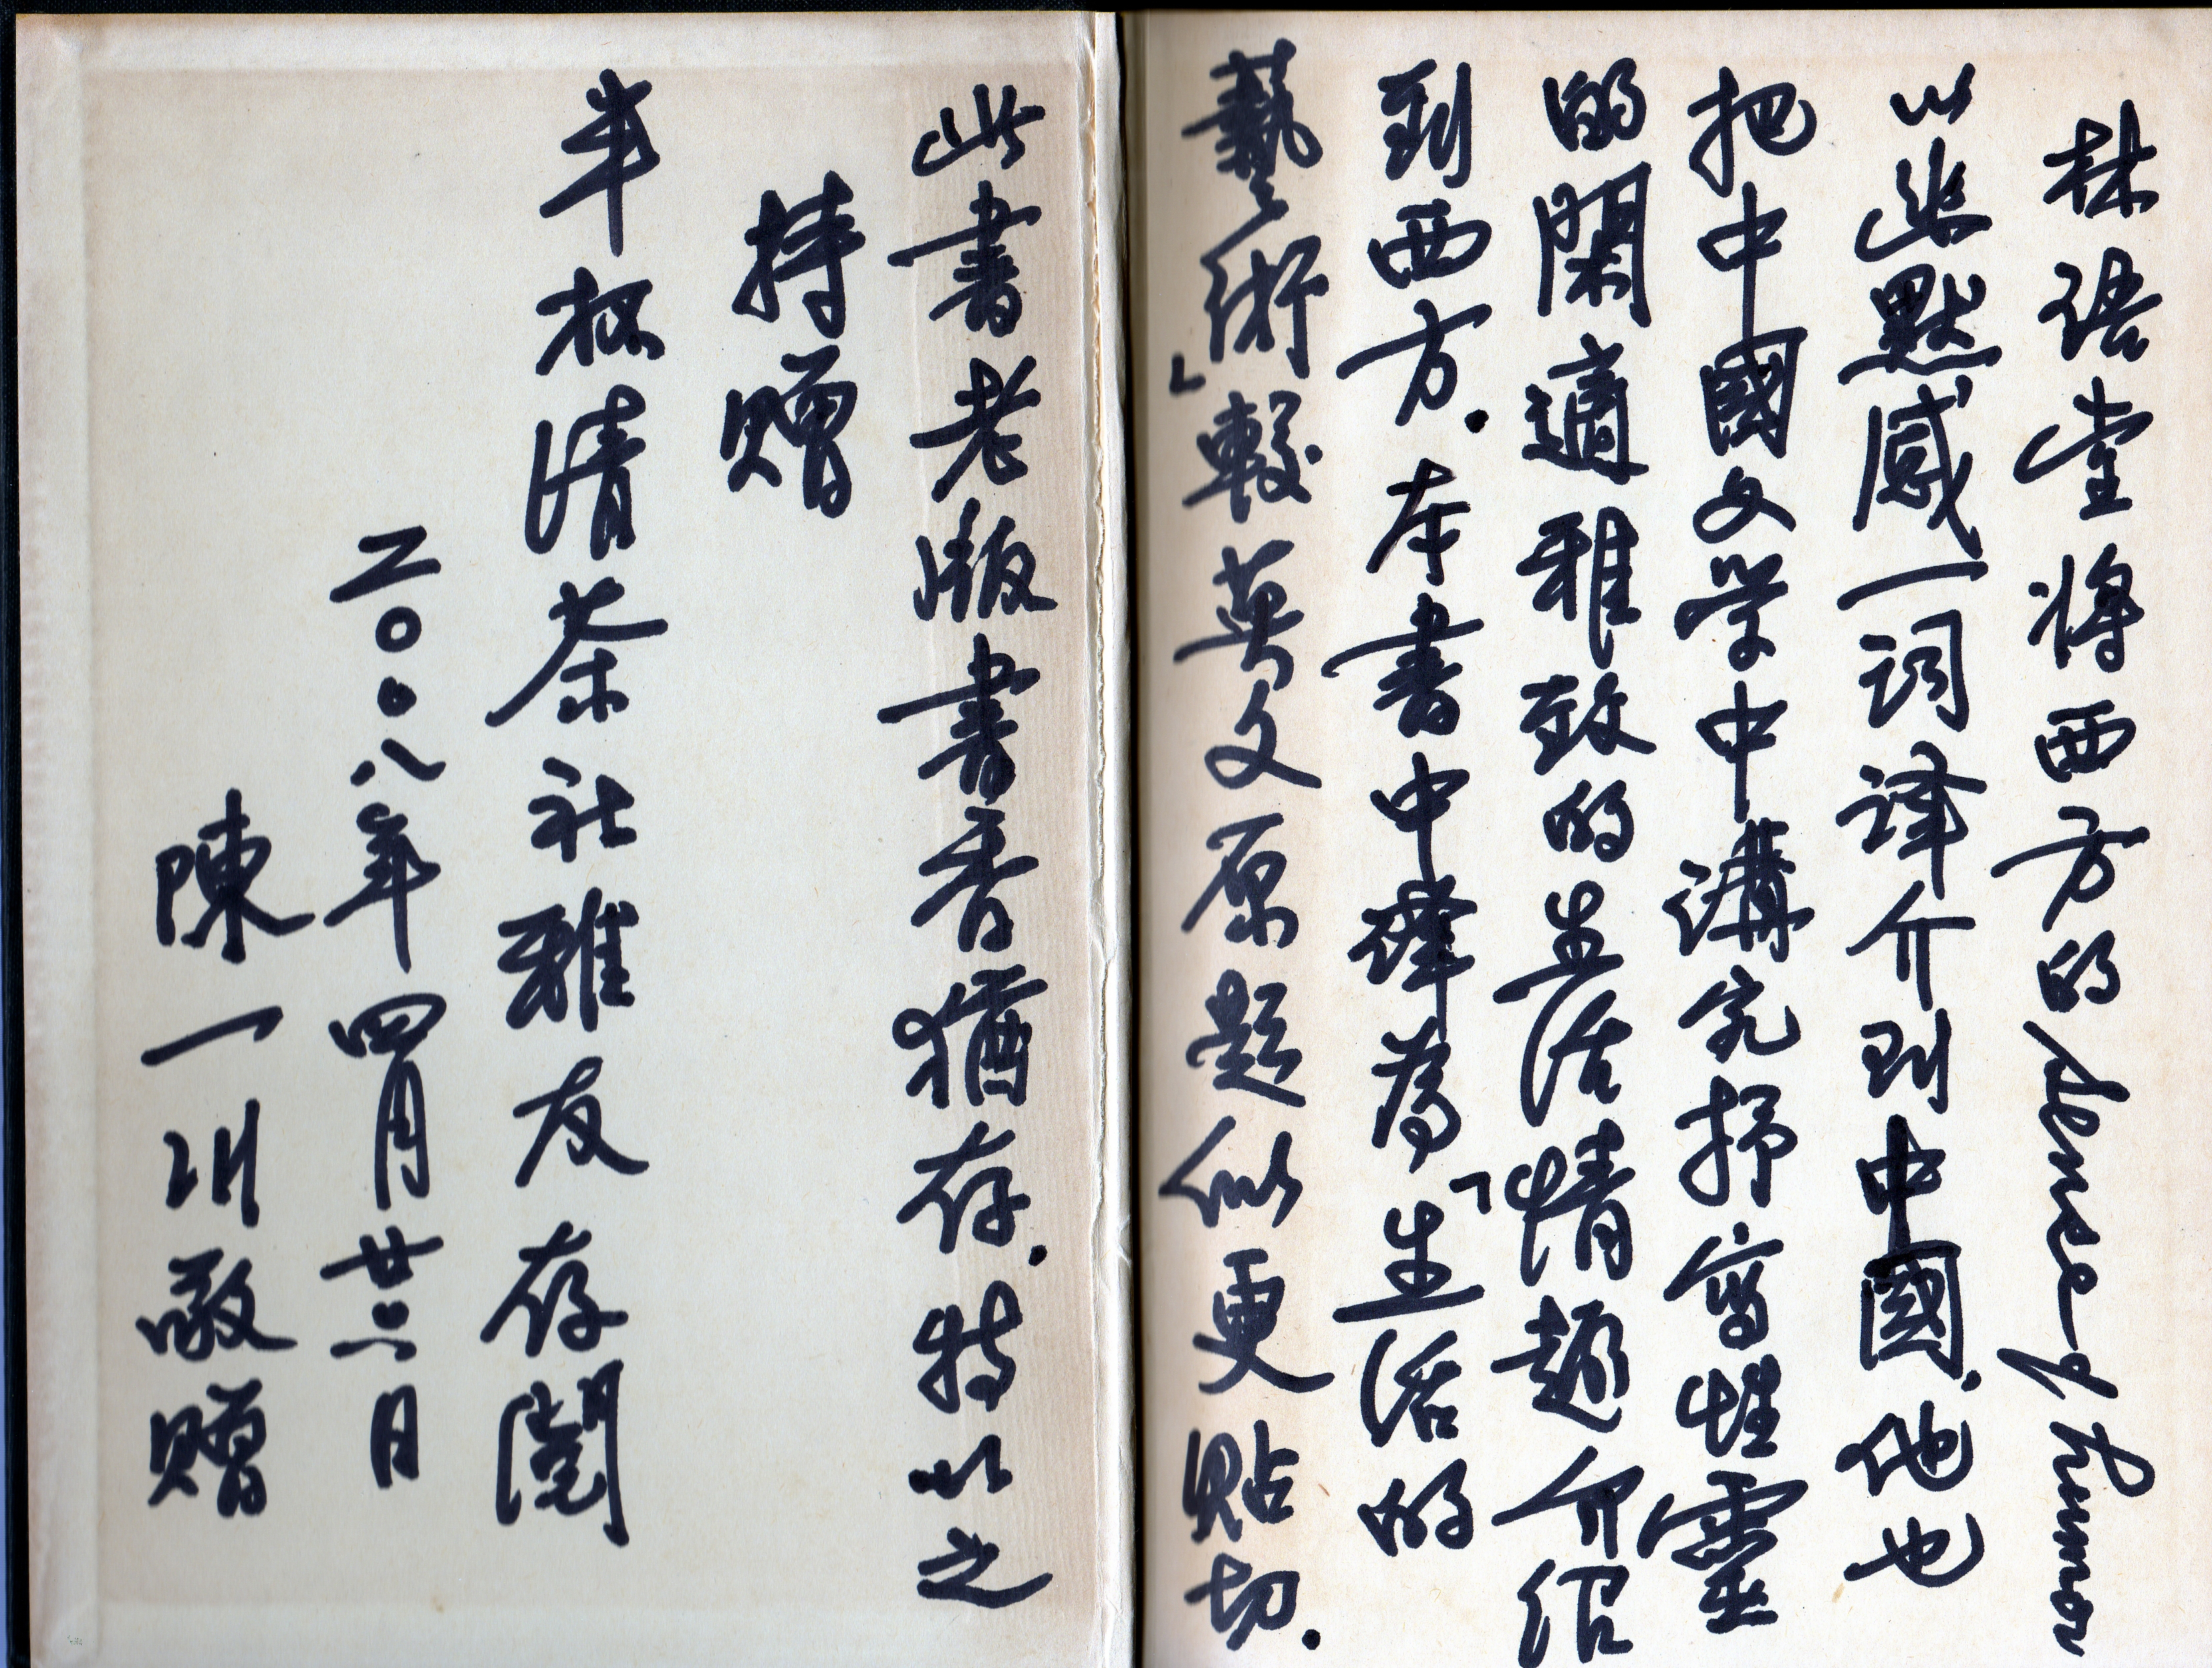 林語堂將西方的 sense of humor
以幽默感一詞译介到中國.他也
把中國文学中講究抒寫性靈
的閑適雅致的生活情趣介绍
到西方.本書中譯為「生活的
藝術」較英文原題似更貼切.
此書老版書香猶存.特以之
持赠
半杯清茶社雅友存閱
二〇〇八年四月廿二日
陳一川敬赠